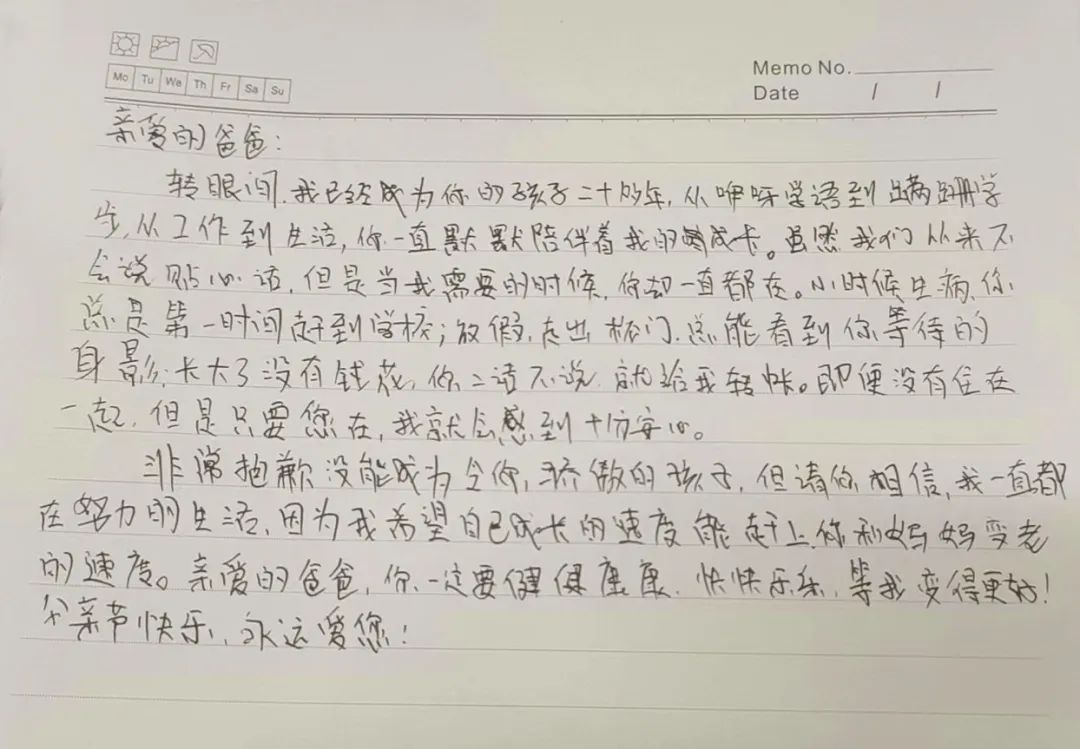 Mo Tu We Th Fr Sa Su
Memo No.
Date / /
亲爱的爸爸:
转眼间,我已经成为你的孩子二十多年,从咿呀学语到蹒跚学
步,从工作到生活,你一直默默陪伴着我的成长。虽然我们从来不
会说贴心话,但是当我需要的时候,你却一直都在。小时候生病,你
总是第一时间赶到学校;放假,走出校门,总能看到你等待的
身影;长大了没有钱花,你二话不说,就给我转帐。即便没有住在
一起,但是只要您在,我就会感到十分安心。
非常抱歉没能成为令你骄傲的孩子,但请你相信,我一直都
在努力的生活,因为我希望自己成长的速度能赶上你和妈妈变老
的速度。亲爱的爸爸,你一定要健健康康,快快乐乐,等我变得更好!
父亲节快乐,永远爱您!